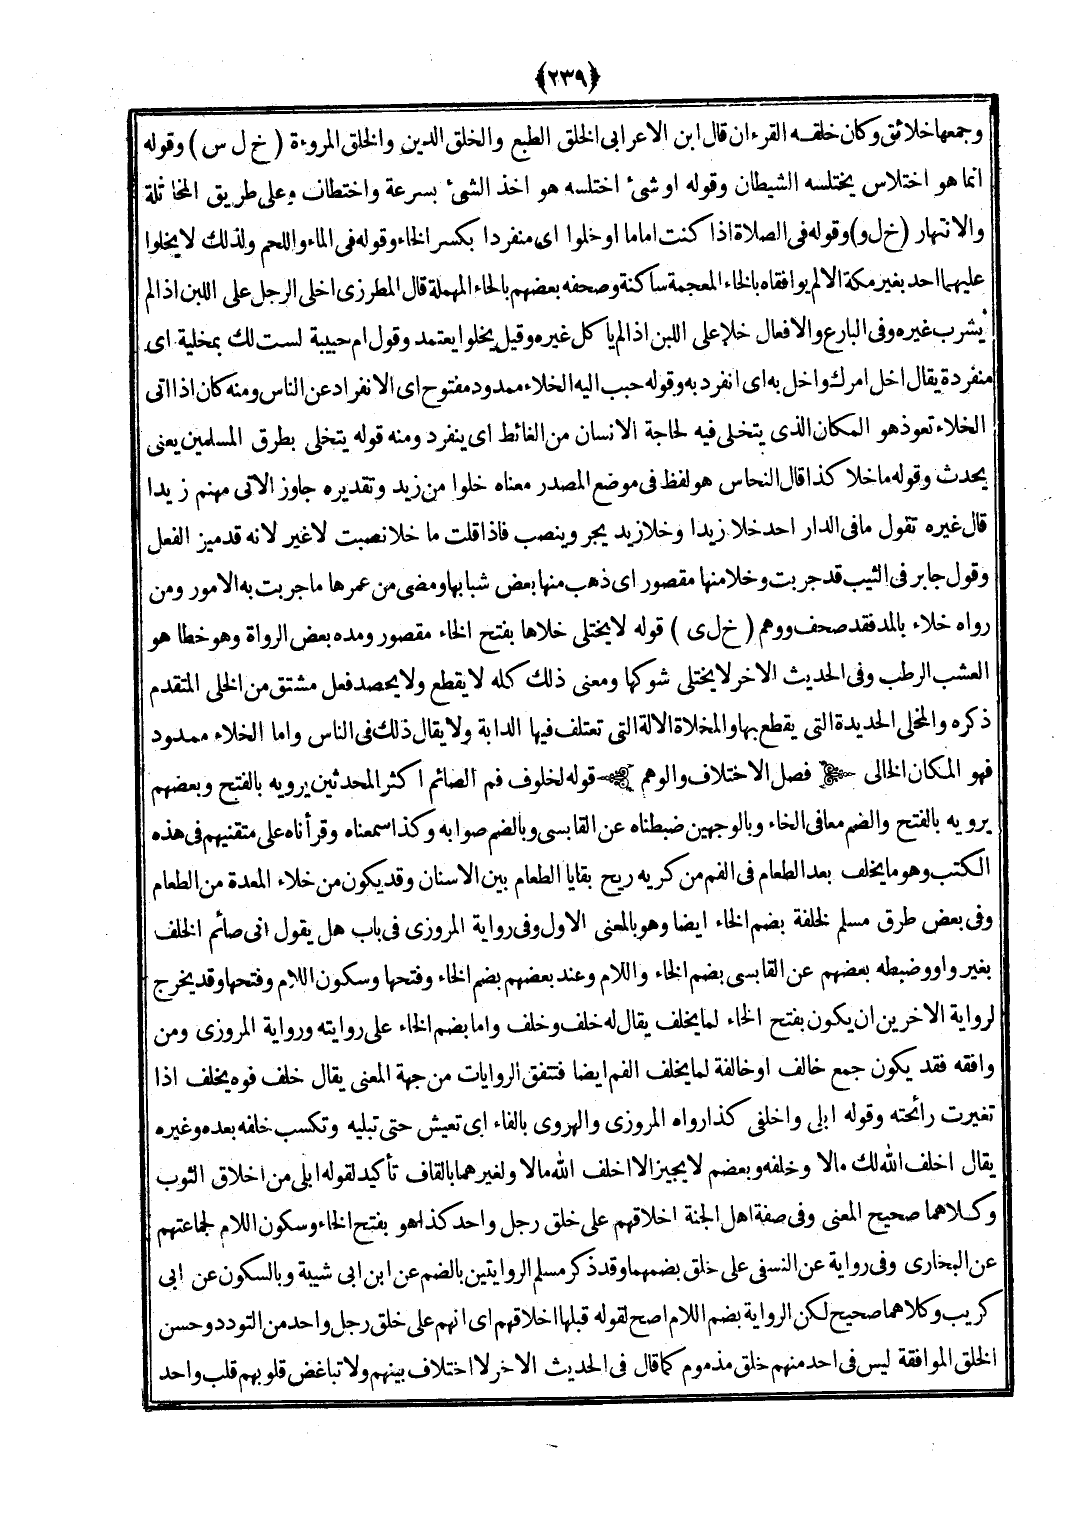 ﴿٢٣٩﴾
وجمعها خلائق وكان خلقه القرءان قال ابن الاعرابى الخلق الطبع والخلق الدين والخلق المروءة ( خ ل س ) وقوله
انما هو اختلاس يختلسه الشيطان وقوله او شئ اختلسه هو اخذ الشئ بسرعة واختطاف وعلى طريق المخاتلة
والانتهار (خ ل و) وقوله فى الصلاة اذا كنت اماما او خلوا اى منفردا بكسر الخاء وقوله فى الماء واللحم ولذلك لا يخلوا
عليهما احد بغير مكة الا لم يوافقاه بالخاء المعجمة ساكنة وصحفه بعضهم بالحاء المهملة قال المطرزى اخلى الرجل على اللبن اذا لم
يشرب غيره وفى البارع والافعال خلا على اللبن اذا لم ياكل غيره وقيل يخلوا يعتمد وقول ام حبيبة لست لك بمخلية اى
منفردة يقال اخل امرك واخل به اى انفرد به وقوله حبب اليه الخلاء ممدود مفتوح اى الانفراد عن الناس ومنه كان اذا اتى
الخلاء تعوذ هو المكان الذى يتخلى فيه لحاجة الانسان من الغائط اى ينفرد ومنه قوله يتخلى بطرق المسلمين يعنى
يحدث وقوله ما خلا كذا قال النحاس هو لفظ فى موضع المصدر معناه خلوا من زيد وتقديره جاوز الاتى منهم زيدا
قال غيره تقول ما فى الدار احد خلا زيدا وخلا زيد يجر وينصب فاذا قلت ما خلا نصبت لا غير لانه قد ميز الفعل
وقول جابر فى الثيب قد جربت وخلا منها مقصور اى ذهب منها بعض شبابها ومضى من عمرها ما جربت به الامور ومن
رواه خلاء بالمد فقد صحف ووهم ( خ ل ى ) قوله لا يختلى خلاها بفتح الخاء مقصور ومده بعض الرواة وهو خطا هو
العشب الرطب وفى الحديث الاخر لا يختلى شوكها ومعنى ذلك كله لا يقطع ولا يحصد فعل مشتق من الخلى المتقدم
ذكره والمخلى الحديدة التى يقطع بها والمخلاة الالة التى تعتلف فيها الدابة ولا يقال ذلك فى الناس واما الخلاء ممدود
فهو المكان الخالى فصل الاختلاف والوهم قوله لخلوف فم الصائم اكثر المحدثين يرويه بالفتح وبعضهم
يرويه بالفتح والضم معا فى الخاء وبالوجهين ضبطناه عن القابسى وبالضم صوابه وكذا سمعناه وقرأناه على متقنيهم فى هذه
الكتب وهو ما يخلف بعد الطعام فى الفم من كريه ريح بقايا الطعام بين الاسنان وقد يكون من خلاء المعدة من الطعام
وفى بعض طرق مسلم لخلفة بضم الخاء ايضا وهو بالمعنى الاول وفى رواية المروزى فى باب هل يقول انى صائم الخلف
بغير واو وضبطه بعضهم عن القابسى بضم الخاء واللام وعند بعضهم بضم الخاء وفتحها وسكون اللام وفتحها وقد يخرج
لرواية الاخرين ان يكون بفتح الخاء لما يخلف يقال له خلف وخلف واما بضم الخاء على روايته ورواية المروزى ومن
وافقه فقد يكون جمع خالف او خالفة لما يخلف الفم ايضا فتتفق الروايات من جهة المعنى يقال خلف فوه يخلف اذا
تغيرت رائحته وقوله ابلى واخلفى كذا رواه المروزى والهروى بالفاء اى تعيش حتى تبليه وتكسب خلفه بعده وغيره
يقال اخلف الله لك مالا وخلفه وبعضم لا يجيز الا اخلف الله مالا ولغيرهما بالقاف تأكيد لقوله ابلى من اخلاق الثوب
وكلاهما صحيح المعنى وفى صفة اهل الجنة اخلاقهم على خلق رجل واحد كذا هو بفتح الخاء وسكون اللام لجماعتهم
عن البخارى وفى رواية عن النسفى على خلق بضمهما وقد ذكر مسلم الروايتين بالضم عن ابن ابى شيبة وبالسكون عن ابى
كريب وكلاهما صحيح لكن الرواية بضم اللام اصح لقوله قبلها اخلاقهم اى انهم على خلق رجل واحد من التودد وحسن
الخلق الموافقة ليس فى احد منهم خلق مذموم كما قال فى الحديث الاخر لا اختلاف بينهم ولا تباغض قلوبهم قلب واحد